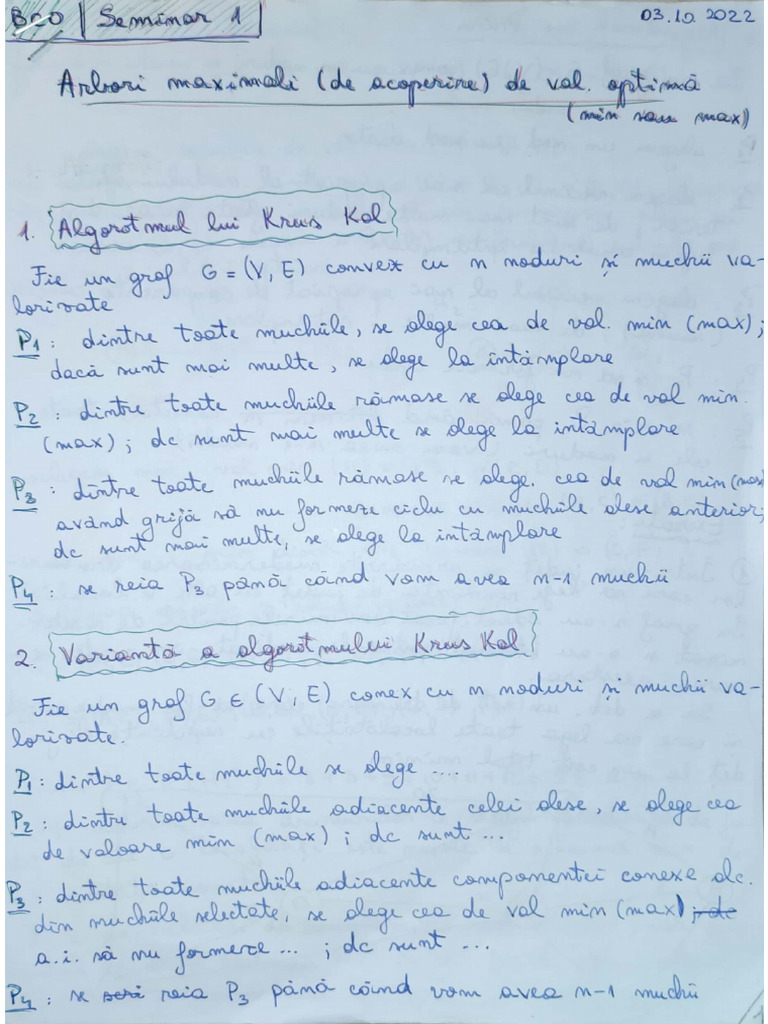 BCO | Seminar 1
03.10.2022
Arbori maximali (de acoperire) de val. optimă
(min sau max)
1. Algorotmul lui Krus Kal
Fie un graf G = (V, E) convex cu n noduri și muchii va-
lorizate
P1 : dintre toate muchiile, se alege cea de val. min (max);
dacă sunt mai multe, se alege la întâmplare
P2 : dintre toate muchiile rămase se alege cea de val min.
(max); dc sunt mai multe se alege la întâmplare
P3 : dintre toate muchiile rămase se alege. cea de val min (max)
având grijă să nu formeze ciclu cu muchiile alese anterior;
dc sunt mai multe, se alege la întâmplare
P4 : se reia P3 până când vom avea n-1 muchii
2. Variantă a algorotmului Krus Kal
Fie un graf G ∈ (V, E) conex cu n noduri și muchii va-
lorizate.
P1 : dintre toate muchiile se alege ...
P2 : dintre toate muchiile adiacente celei alese, se alege cea
de valoare min (max) ; dc sunt ...
P3 : dintre toate muchiile adiacente componentei conexe alc.
din muchiile selectate, se alege cea de val min (max) ; dc
a.i. să nu formeze ... ; dc sunt ...
P4 : se reia P3 până când vom avea n-1 muchii